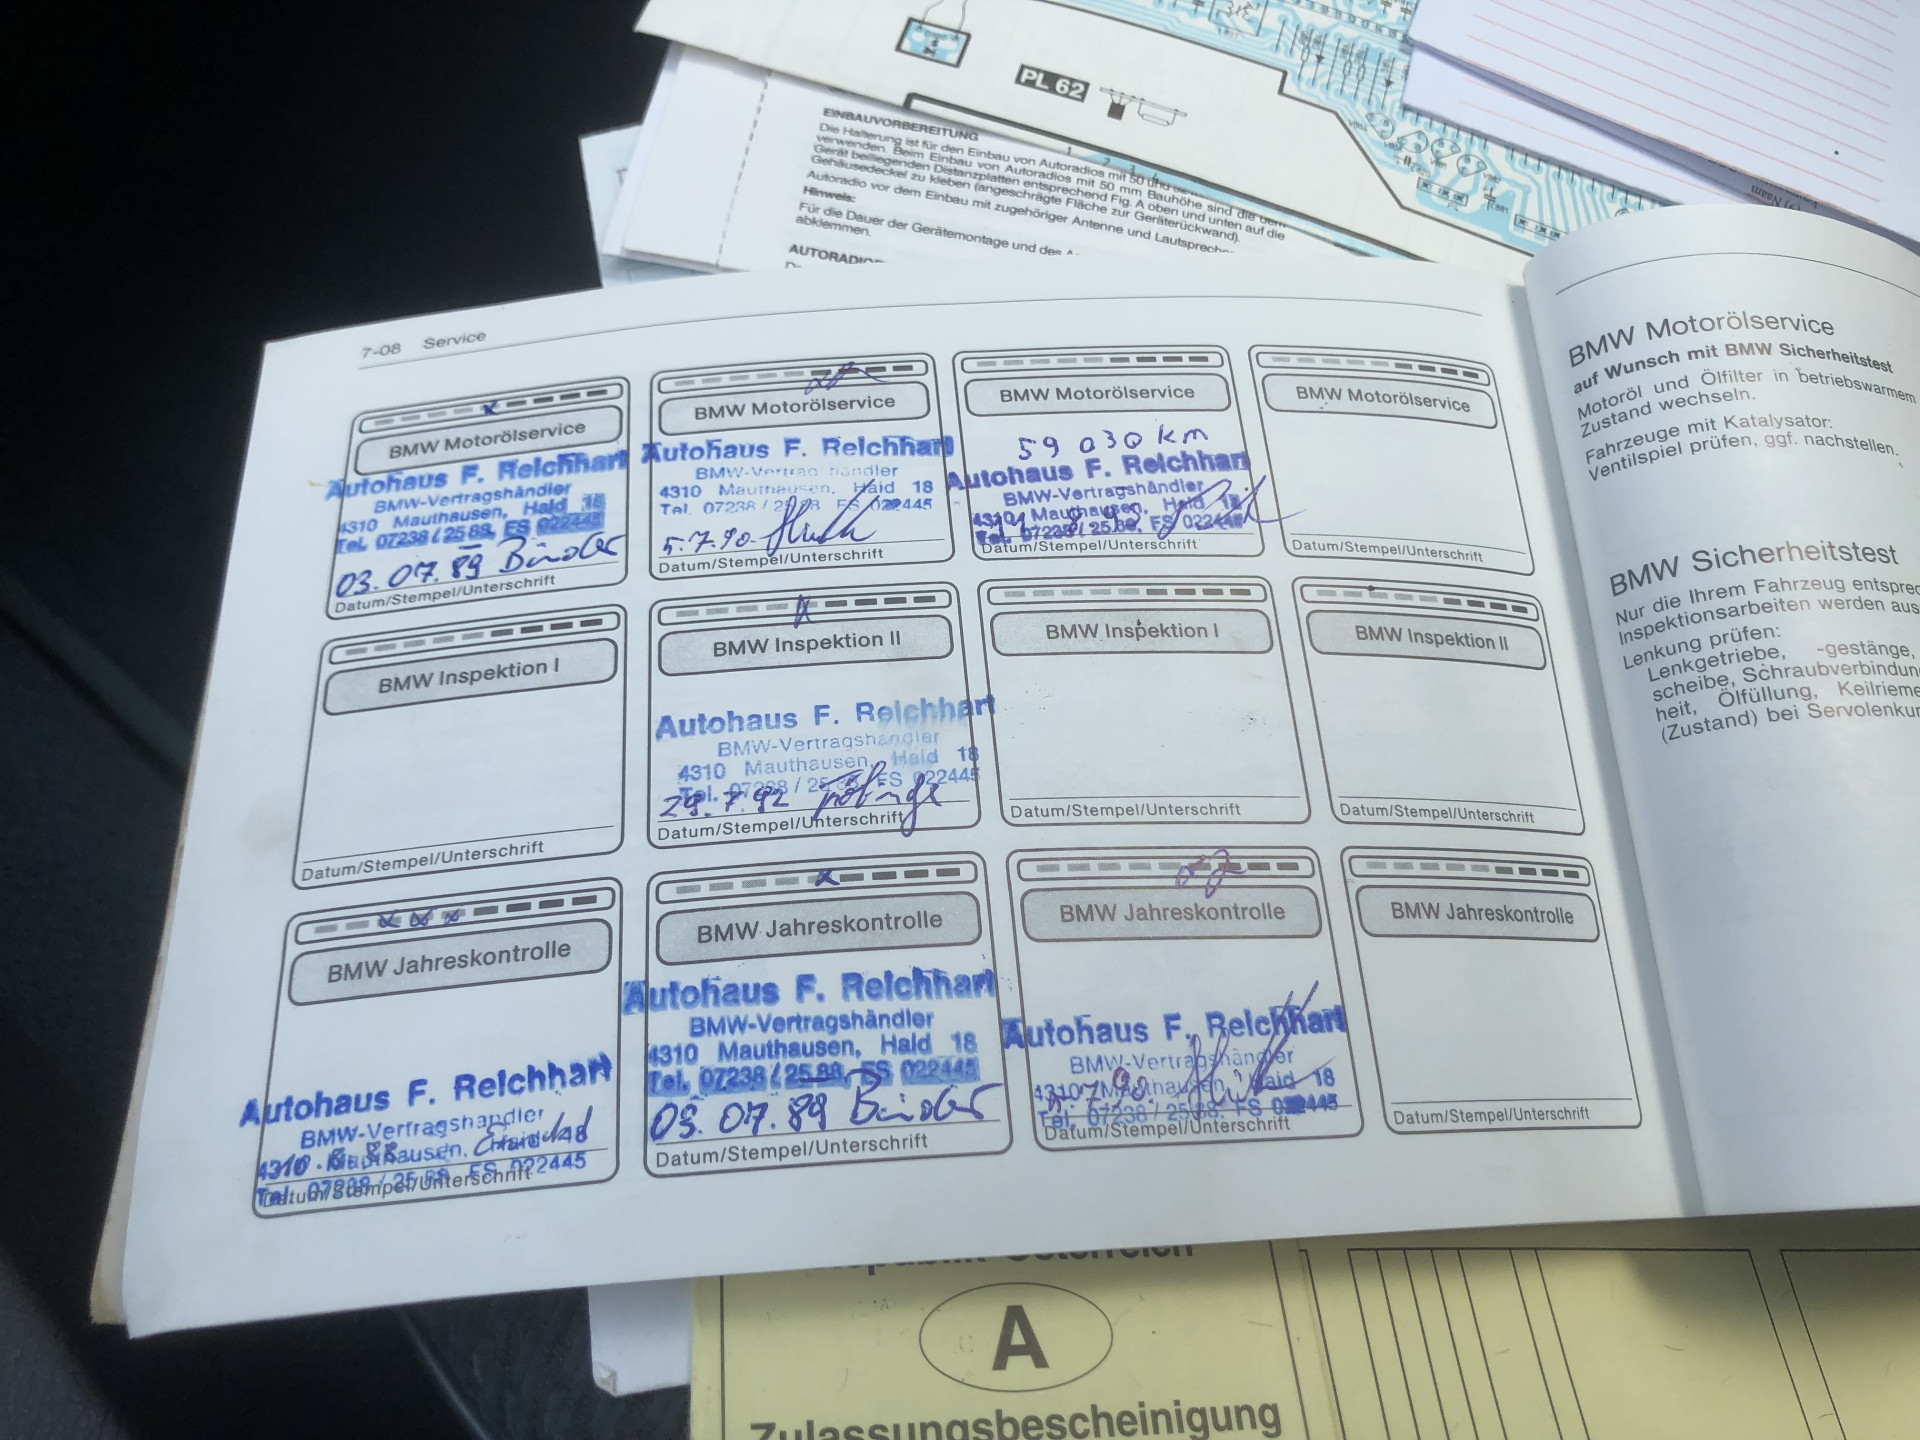 PL 62
EINBAUVORBEREITUNG
Die Halterung ist für den Einbau von Autoradios mit 50 und
verwenden. Beim Einbau von Autoradios mit 50 mm Bauhöhe sind die dem
Gerät beiliegenden Distanzplatten entsprechend Fig. A oben und unten auf die
Gehäusedeckel zu kleben (angeschrägte Fläche zur Geräterückwand).
Autoradio vor dem Einbau mit zugehöriger Antenne und Lautsprech
Hinweis:
Für die Dauer der Gerätemontage und des
abklemmen.
7-08 Service
BMW Motorölservice
Autohaus F. Reichhart
BMW-Vertragshändler
4310 Mauthausen, Haid 18
Tel. 07238 / 25 88, FS 022445
03. 07. 89
Datum/Stempel/Unterschrift
BMW Motorölservice
Autohaus F. Reichhart
BMW-Vertrag händler
4310 Mauthausen, Haid 18
Tel. 07238 / 25 88 FS 022445
5.7.90
Datum/Stempel/Unterschrift
BMW Motorölservice
59 030 km
Autohaus F. Reichhart
BMW-Vertragshändler
4310 Mauthausen, Haid 18
Tel. 07238 / 25 88, FS 022445
Datum/Stempel/Unterschrift
BMW Motorölservice
Datum/Stempel/Unterschrift
BMW Inspektion I
Datum/Stempel/Unterschrift
BMW Inspektion II
Autohaus F. Reichhart
BMW-Vertragshändler
4310 Mauthausen, Haid 18
Tel. 07238 / 25 88, FS 022445
29. 7. 92
Datum/Stempel/Unterschrift
BMW Inspektion I
Datum/Stempel/Unterschrift
BMW Inspektion II
Datum/Stempel/Unterschrift
BMW Jahreskontrolle
Autohaus F. Reichhart
BMW-Vertragshändler
4310 Mauthausen, Haid 18
Tel. 07238 / 25 88, FS 022445
Datum/Stempel/Unterschrift
BMW Jahreskontrolle
Autohaus F. Reichhart
BMW-Vertragshändler
4310 Mauthausen, Haid 18
Tel. 07238 / 25 88, FS 022445
03. 07. 89
Datum/Stempel/Unterschrift
BMW Jahreskontrolle
Autohaus F. Reichhart
BMW-Vertragshändler
4310 Mauthausen, Haid 18
Tel. 07238 / 25 88, FS 022445
Datum/Stempel/Unterschrift
BMW Jahreskontrolle
Datum/Stempel/Unterschrift
BMW Motorölservice
auf Wunsch mit BMW Sicherheitstest
Motoröl und Ölfilter in betriebswarmem
Zustand wechseln.
Fahrzeuge mit Katalysator:
Ventilspiel prüfen, ggf. nachstellen.
BMW Sicherheitstest
Nur die Ihrem Fahrzeug entsprec
Inspektionsarbeiten werden aus
Lenkung prüfen:
Lenkgetriebe, -gestänge,
scheibe, Schraubverbindun
heit, Ölfüllung, Keilrieme
(Zustand) bei Servolenku
A
Zulassungsbescheinigung